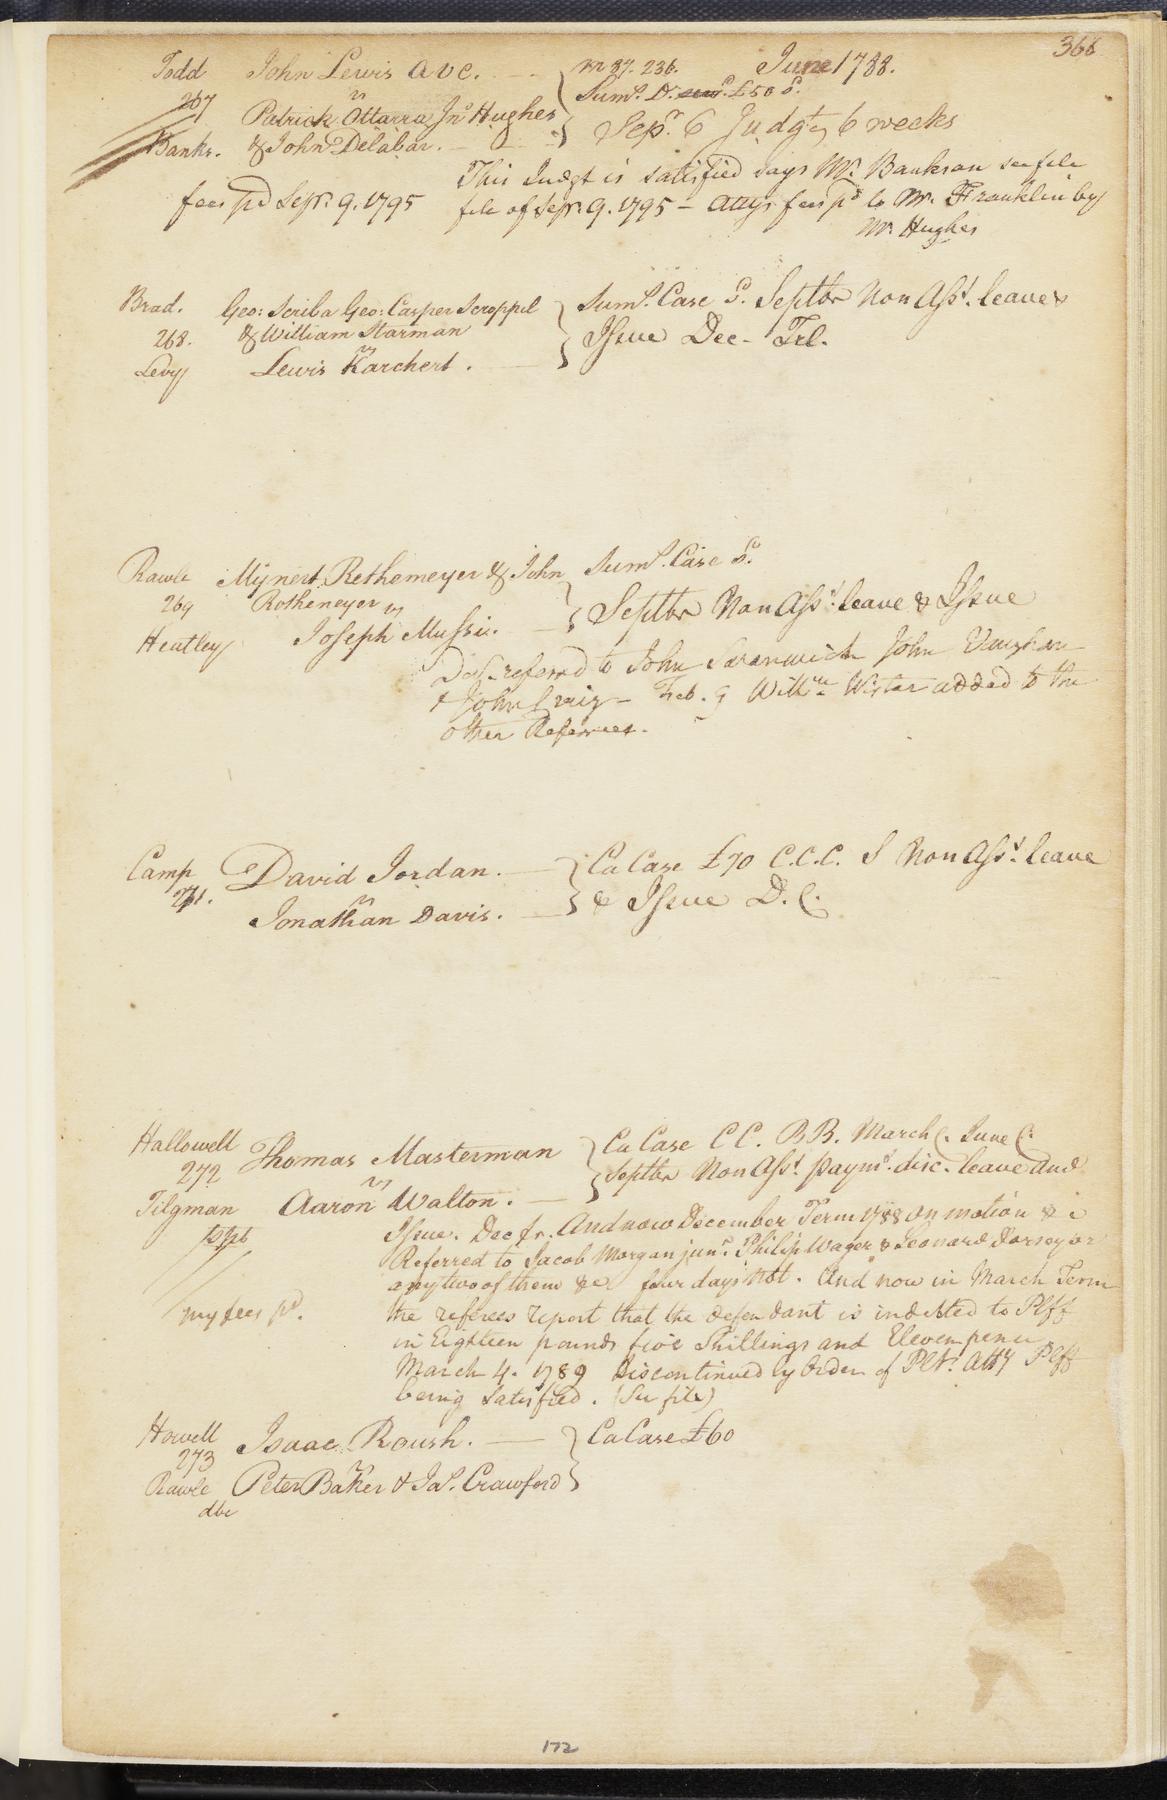 368
June 1788.
Todd John Lewis ave. mr 87. 236.
267 vs Sums. D. £50 S.
Patrick Ottarra Jno Hughes Sepr 6 Judgt 6 weeks
Banks. & John Delabar.
This Judgt is satisfied says Mr. Bankson see file
fees pd Sepr. 9. 1795 file of Sepr. 9. 1795 - attys fees pd to Mr. Franklin by
Mr Hughes
Brad. Geo: Scriba Geo: Casper Scroppel Sums. Case S. Septbr Non Asst. leave &
268. & William Starman Issue Dec - Trl.
Levy vs Lewis Karchert.
Rawle Mijnert Rethemeyer & John Sums. Case S.
269 Rothemeyer vs Septbr Non Asst. leave & Issue
Heatley Joseph Mussi.
Def. referred to John Swanwick John Vaughan
& John Craig - Feb. 9 Willm Wistar added to the
other Referrees.
Camp David Jordan. Ca Case £70 C.C.C. S Non Asst. leave
271. vs & Issue D.C.
Jonathan Davis.
Hallowell Thomas Masterman Ca Case CC. BB. March C. June C.
272 vs Septbr Non Asst paymt. disc. leave and
Tilgman Aaron Walton.
Issue. Dec fr. And now December Term 1788 on motion &c
Referred to Jacob Morgan junr. Philip Wager & Leonard Dorsey or
any two of them &c four days Not. And now in March Term
my fees pd. the referees report that the defendant is indebted to Plff
in Eighteen pounds five Shillings and Eleven pence
March 4. 1789 Discontinued by Order of Plts. Atty Plff
being Satisfied. (See file)
Howell Isaac Roush. Ca Case £60
273 vs
Rawle Peter Baker & Jas. Crawford
dbe
172